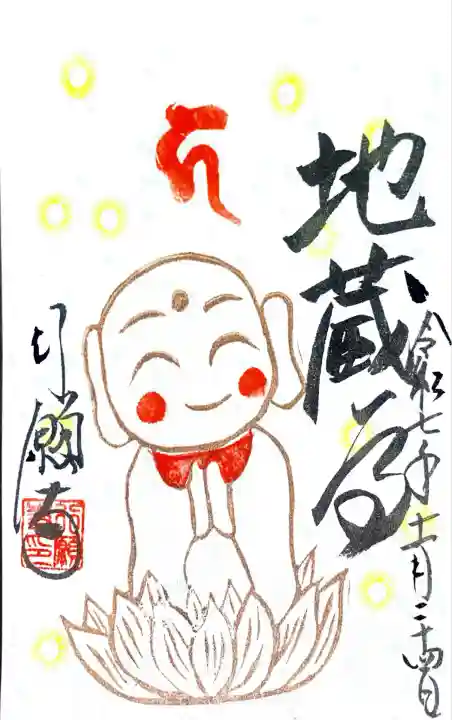 令和七年十一月二十四日
地蔵尊
行願寺